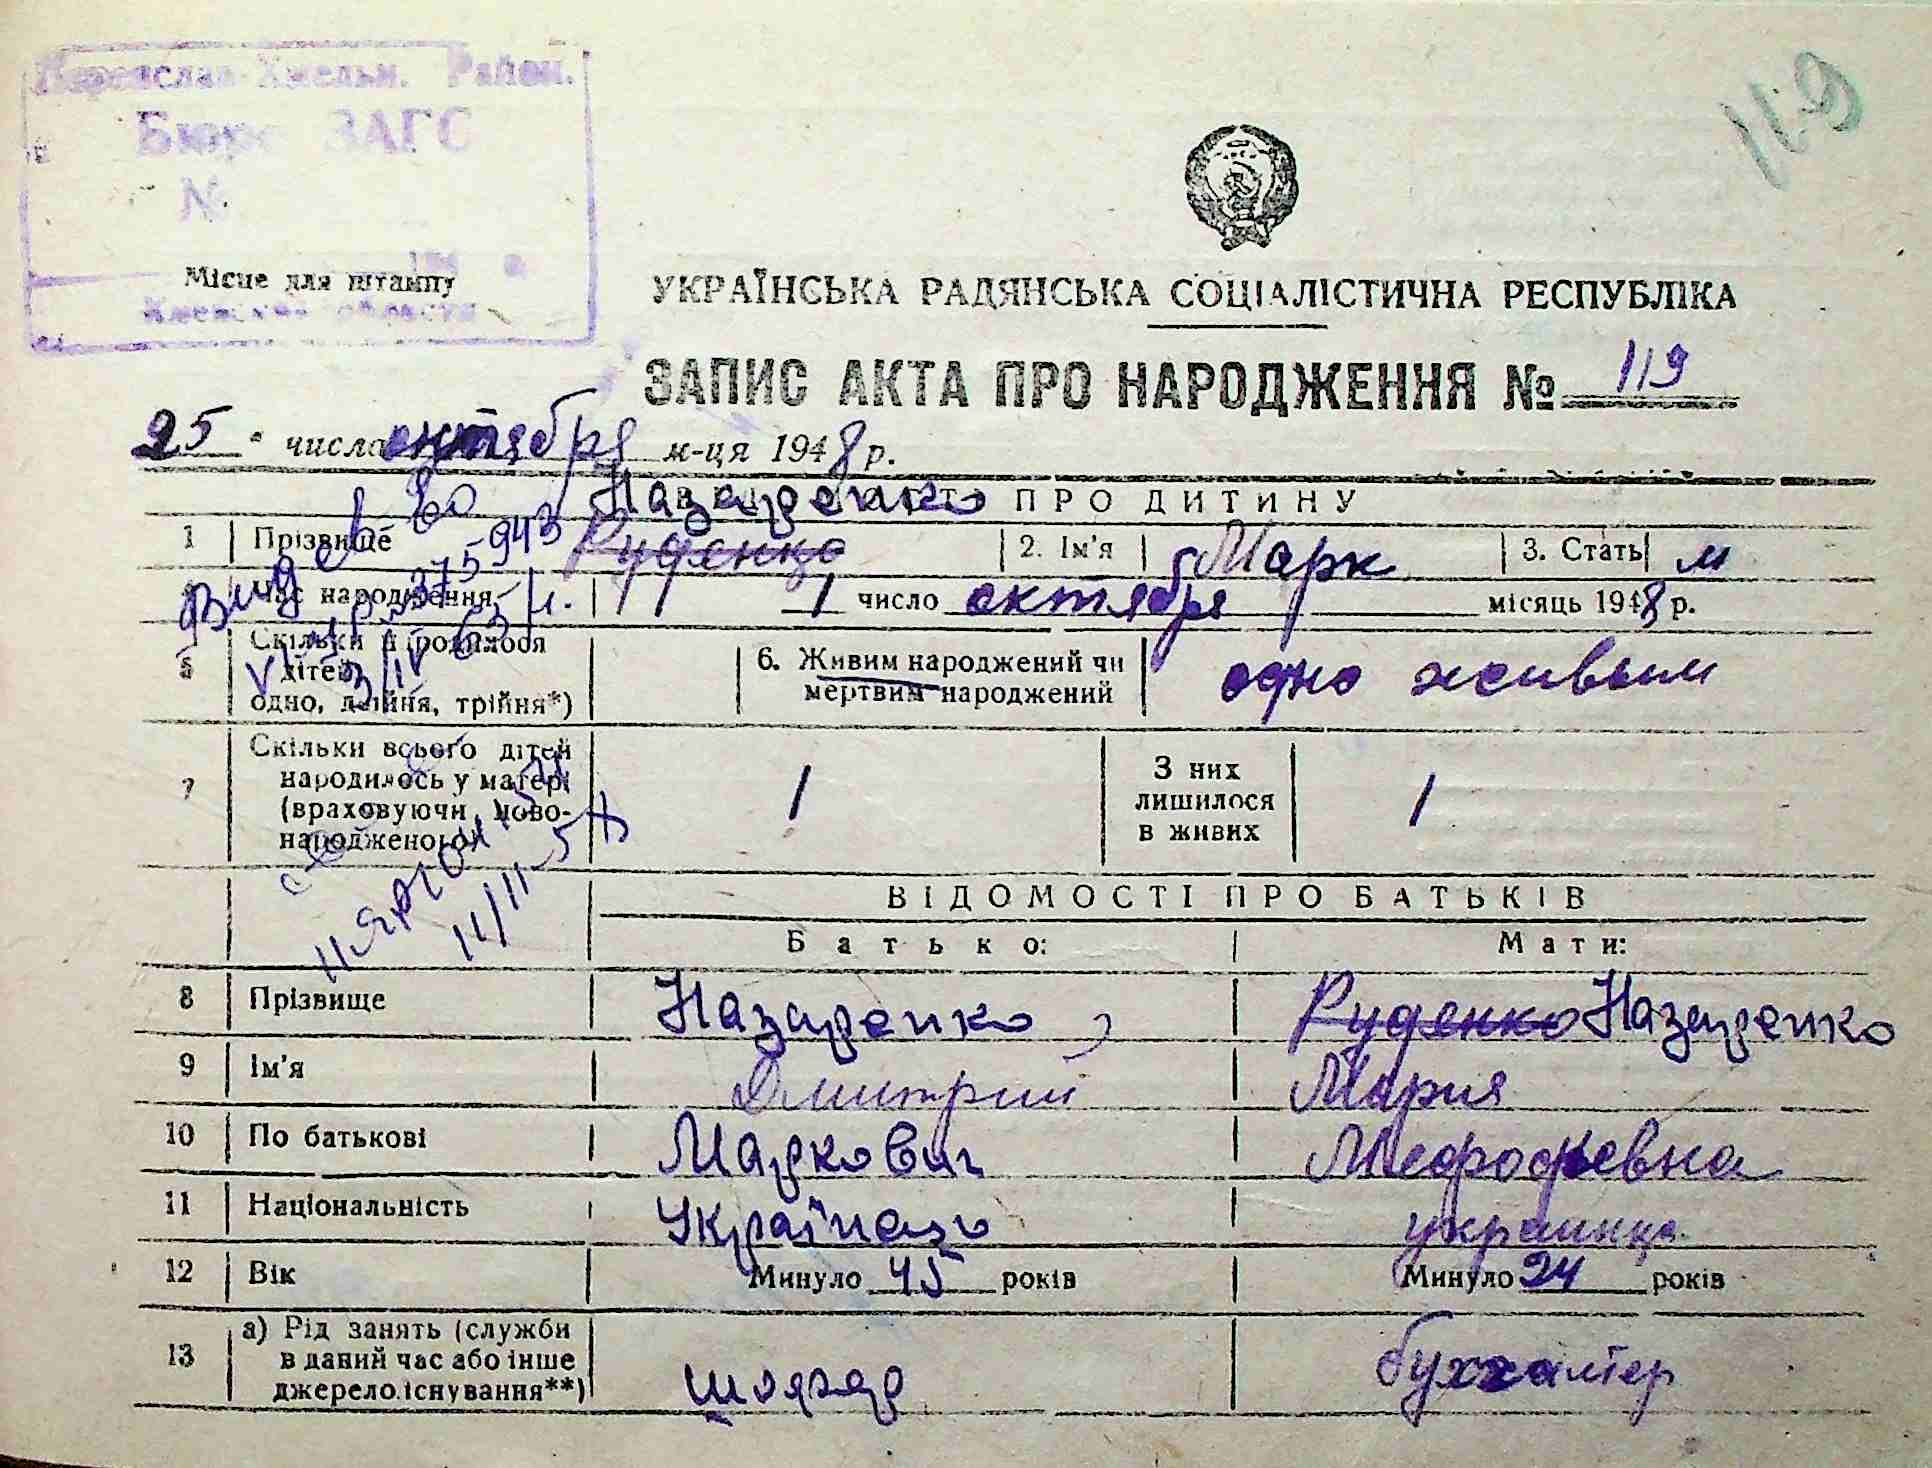 119
Переяслав-Хмельн. Район.
Бюро ЗАГС
№
194 г.
Місце для штампу
Киевской области
УКРАЇНСЬКА РАДЯНСЬКА СОЦІАЛІСТИЧНА РЕСПУБЛІКА
ЗАПИС АКТА ПРО НАРОДЖЕННЯ № 119
25 " числа октября м-ця 1948 р.
Назаренко ПРО ДИТИНУ
1 Прізвище Руденко 2. Ім'я Марк 3. Стать м
Час народження 1 число октября місяць 1948 р.
5 Скільки народилося
дітей
одно, двійня, трійня*)
6. Живим народжений чи
мертвим народжений
одно живым
7 Скільки всього дітей
народилось у матері
(враховуючи ново-
народженою)
1
З них
лишилося
в живих
1
11/11-57
ВІДОМОСТІ ПРО БАТЬКІВ
Батько: Мати:
8 Прізвище Назаренко Руденко Назаренко
9 Ім'я Дмитрий Мария
10 По батькові Маркович Мефодьевна
11 Національність Українець украинца
12 Вік Минуло 45 років Минуло 24 років
13 а) Рід занять (служби
в даний час або інше
джерело існування**)
шофер бухгалтер